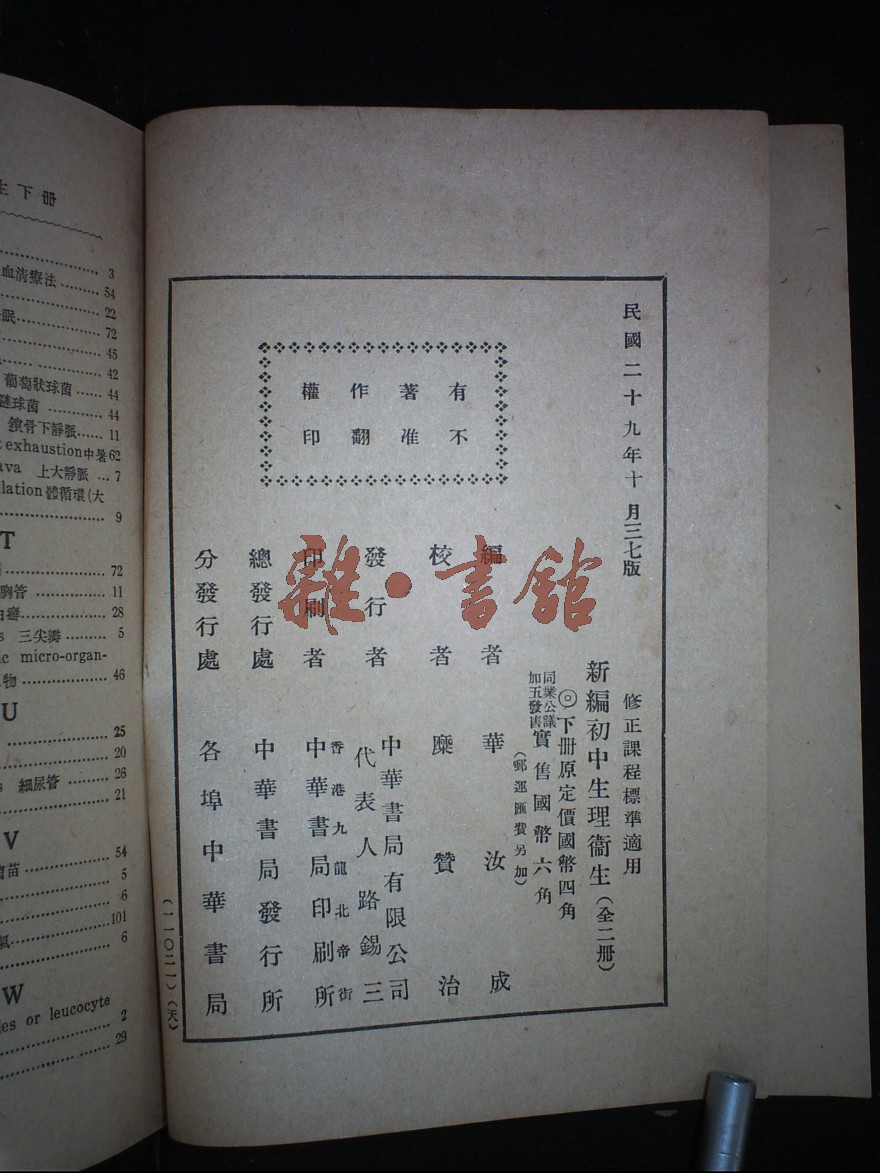 生下冊
3
血清療法 54
22
眠 72
45
42
葡萄狀球菌 44
鏈球菌 44
鎖骨下靜脈 11
exhaustion中暑62
ava 上大靜脈 7
lation 體循環(大
9
T
72
胸管 11
白癬 28
s 三尖瓣 5
ic micro-organ-
物 46
U
25
20
s 細尿管 26
21
V
苗 54
5
6
101
6
W
les or leucocyte
2
29
民國二十九年十月三七版
修正課程標準適用
新編初中生理衞生(全二冊)
◎下冊原定價國幣四角
同業公議
加五發售
實售國幣六角
(郵運匯費另加)
有著作權
不准翻印
編者 華汝成
校者 糜贊治
發行者 中華書局有限公司
代表人路錫三
印刷者 香港九龍北帝街
中華書局印刷所
總發行處 中華書局發行所
分發行處 各埠中華書局
(一一〇二一)(天)
雜·書館